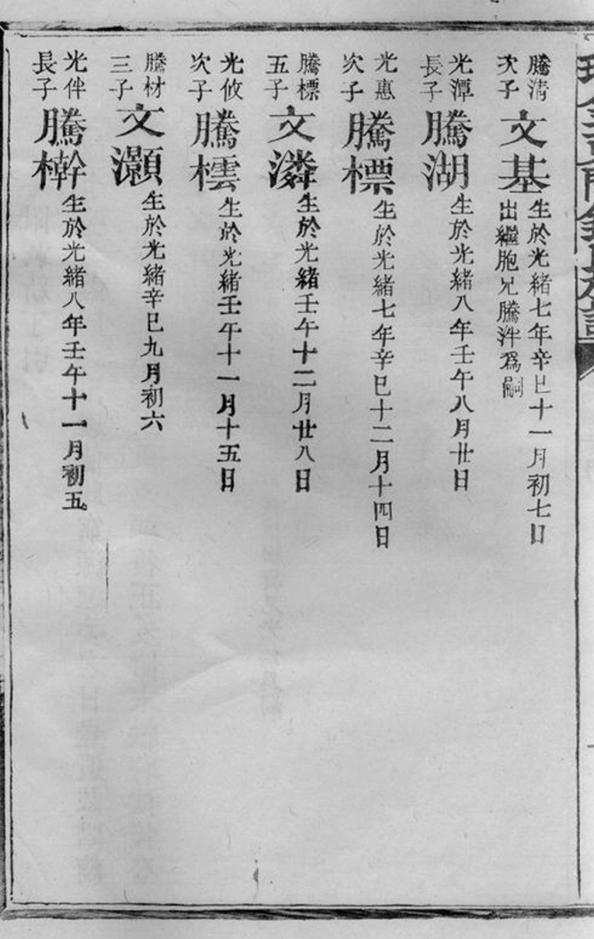 騰清次子 文基 生於光緒七年辛巳十一月初七日
出繼胞兄騰泮爲嗣
光潭長子 騰湖 生於光緒八年壬午八月廿日
光惠次子 騰標 生於光緒七年辛巳十二月十四日
騰標五子 文潾 生於光緒壬午十二月廿八日
光攸次子 騰橒 生於光緒壬午十一月十五日
騰材三子 文灝 生於光緒辛巳九月初六
光伴長子 騰檊 生於光緒八年壬午十一月初五